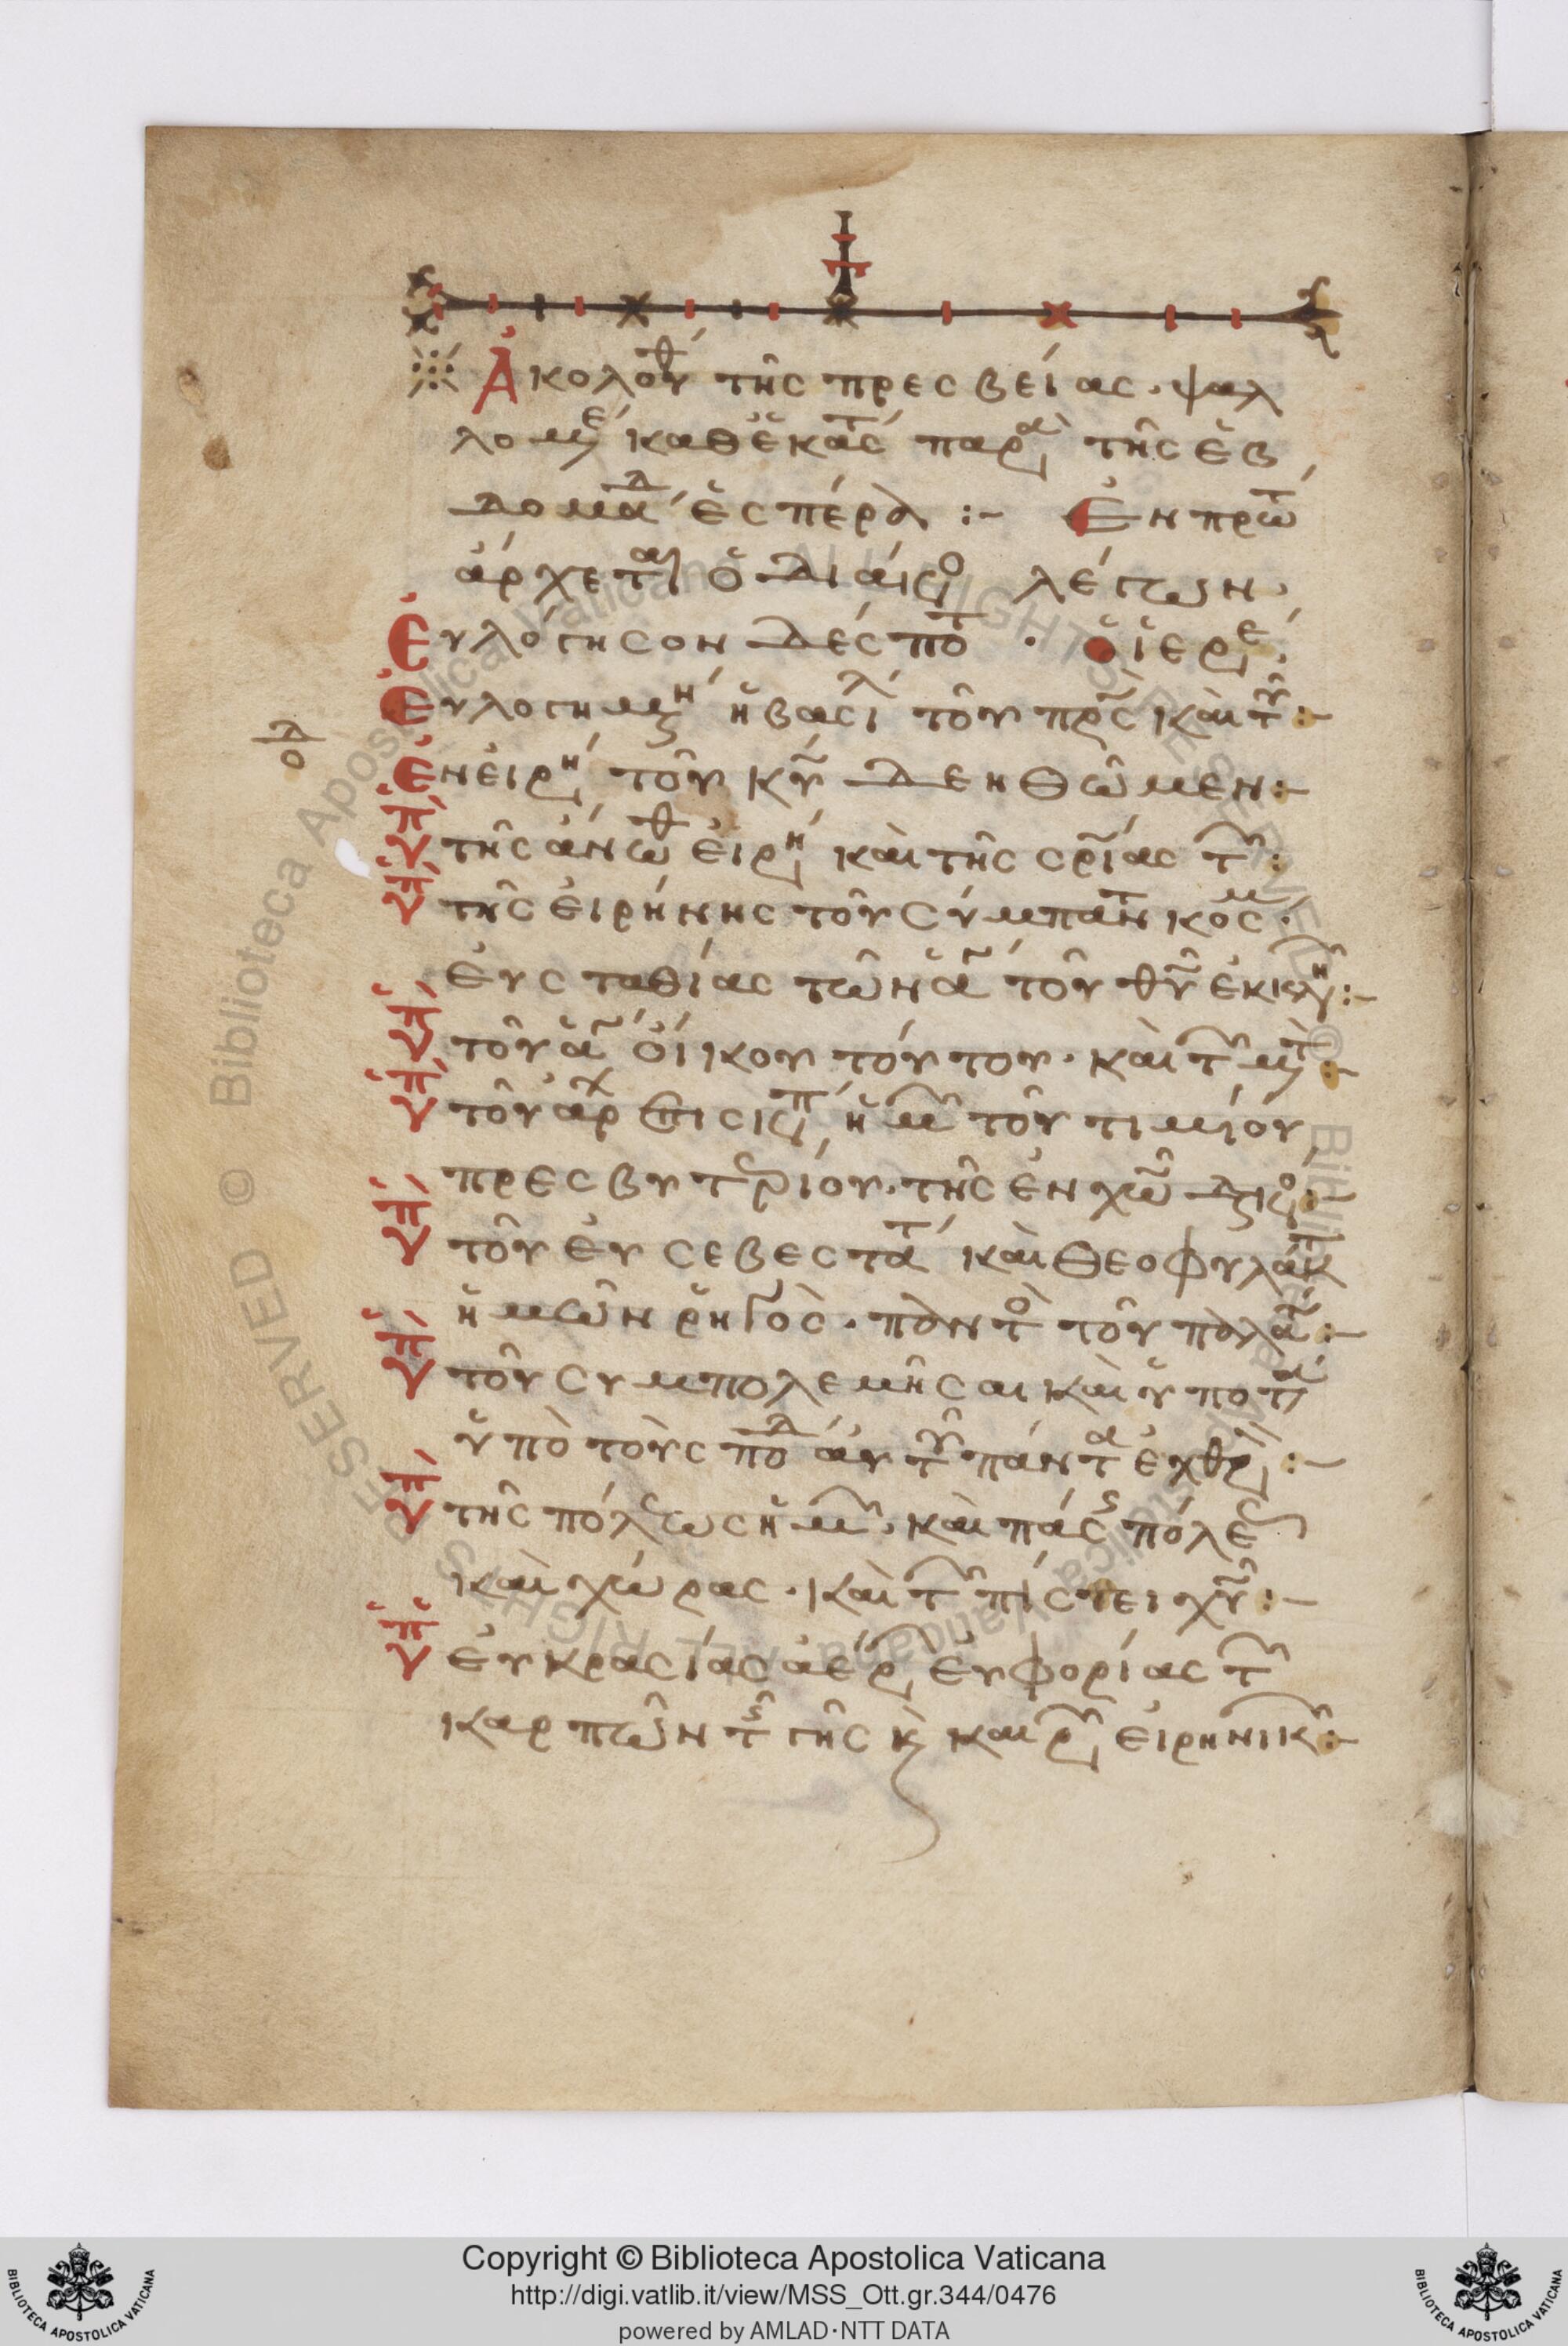 Ἀκολου^θ τῆς πρεσβείας· ψαλ
λομ^ε καθἑκάσ^τ παρ^α τῆς ἑβ
δομά^δ ἑσπέρας :- Ἐν πρώ^τ
ἄρχεται ὁ διάκο λέγων·
Εὐλόγησον δέσπο^τ · ὁ ἱερ^ε
Εὐλογημ^η ἡ βασι^λ τοῦ πρς καὶ τ^ου :-
Ἐν εἰρ^η τοῦ κυ δεηθῶμεν :-
Ὑπ τῆς ἄνω^θ εἰρ^η καὶ τῆς σρίας τ :
Ὑπ τῆς εἰρήνης τοῦ σύμπαν^τ κοσ^μ ·
εὐσταθίας τῶν ἁ τοῦ θυ ἐκκλη :-
Ὑπ τοῦ ἁ οἴκου τούτου· καὶ τ μ^τ :-
Ὑπ τοῦ ἀρ^χ ἐπισκ^π ἡμ τοῦ τιμίου
πρεσβυτερίου· τῆς ἐν χω διακο :-
Ὑπ τοῦ εὐσεβεστά^τ καὶ θεοφυλάκ^τ
ἡμῶν ῥηγὸς· παντ^ο τοῦ παλα^τ :-
Ὑπ τοῦ συμπολεμῆσαι καὶ ὑποτ^α
ὑπὸ τοὺς πό^δ αὐτ^ου πάντ^α ἐχθρ :-
Ὑπ τῆς πόλεως ἡμ· καὶ πάσ πόλε
καὶ χώρας· καὶ τ πίστει χυ :-
Ὑπ εὐκρασίας ἀέρ εὐφορίας τ
καρπῶν τ γῆς κ καιρ εἰρηνικ :-
Copyright © Biblioteca Apostolica Vaticana
http://digi.vatlib.it/view/MSS_Ott.gr.344/0476
powered by AMLAD·NTT DATA
BIBLIOTECA APOSTOLICA VATICANA
BIBLIOTECA APOSTOLICA VATICANA